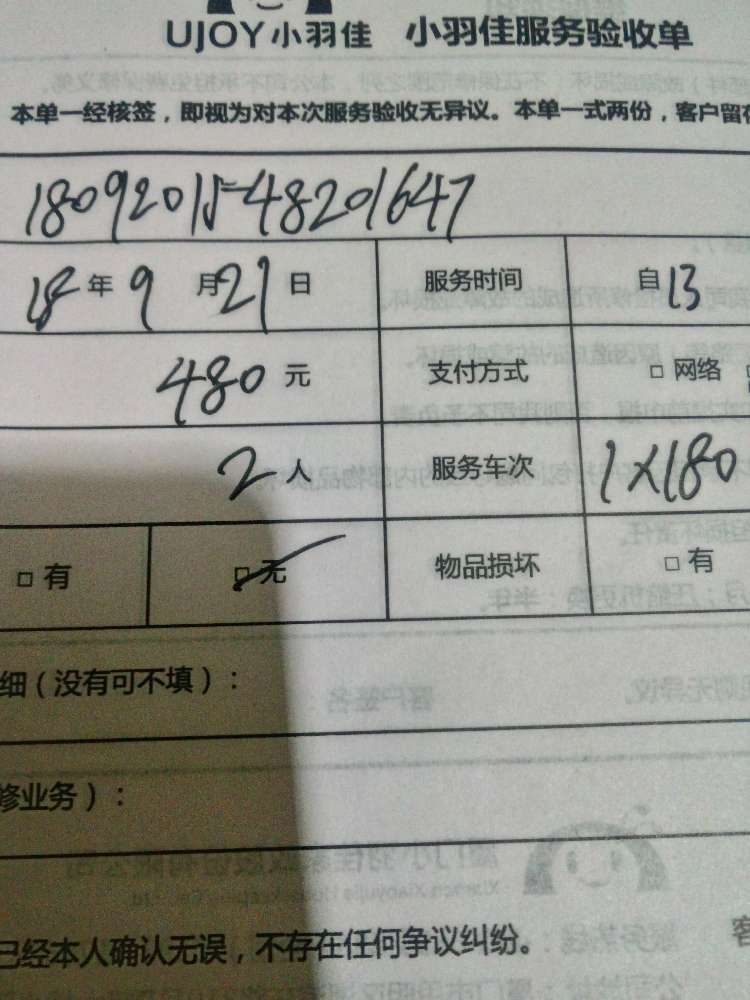 UJOY小羽佳 小羽佳服务验收单
本单一经核签，即视为对本次服务验收无异议。本单一式两份，客户留存
18092015-48201647
18 年 9 月 21 日 服务时间 自 13
480 元 支付方式 □ 网络
2 人 服务车次 1×180
□ 有 □ 无 物品损坏 □ 有
细（没有可不填）：
修业务）：
已经本人确认无误，不存在任何争议纠纷。
客